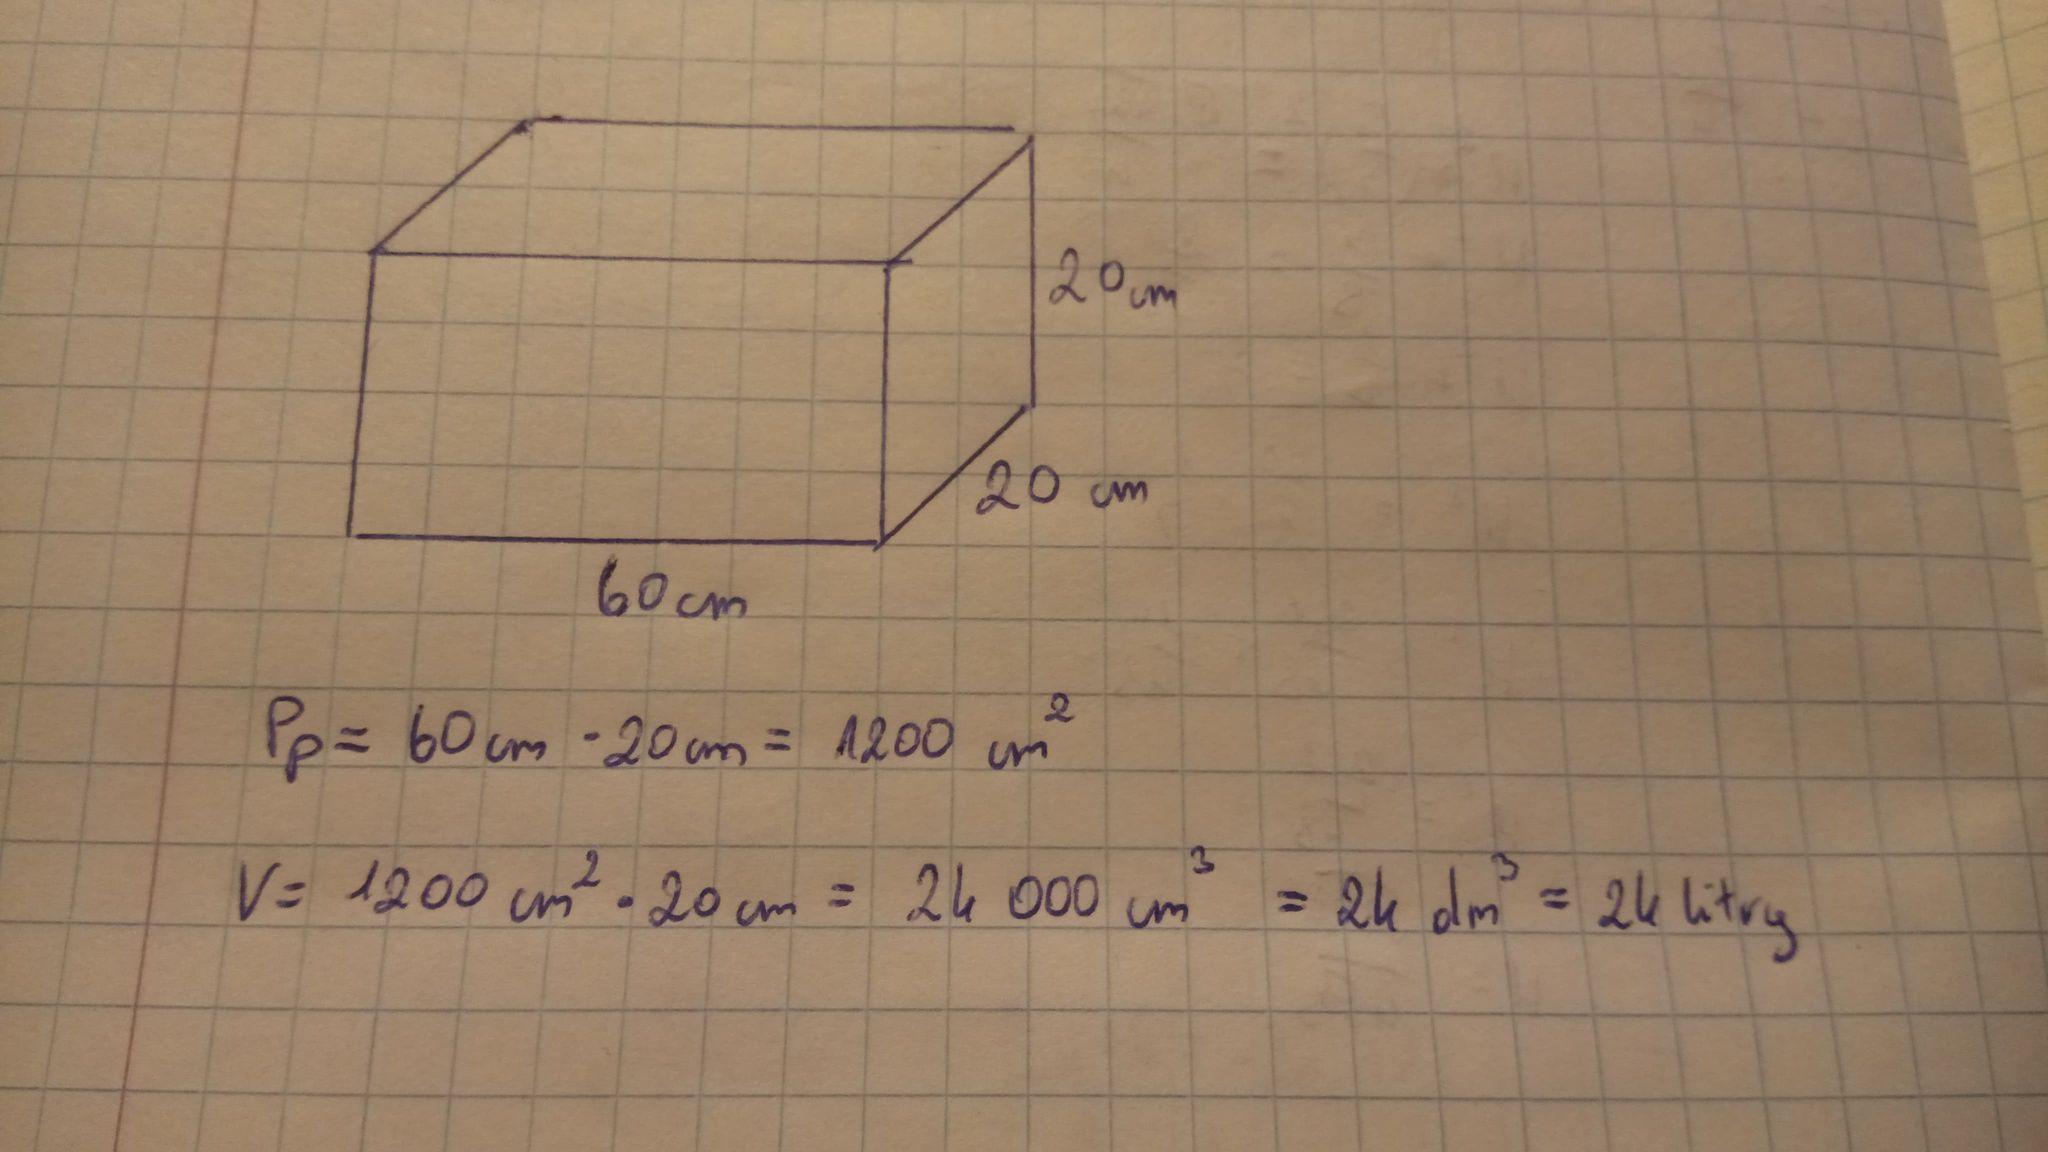 20cm
20 cm
60cm
Pp = 60cm · 20cm = 1200 cm²
V = 1200 cm² · 20cm = 24 000 cm³ = 24 dm³ = 24 litry